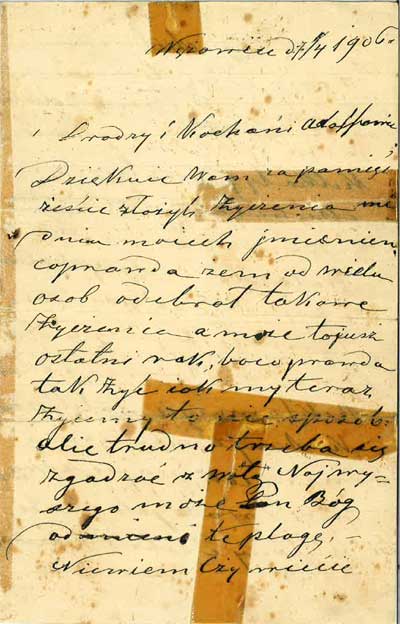 d 7/4 1906.
Drodzy i Kochani Adolfowie
Dziękuie Wam za pamięć
żeście złożyli życzenia we
dniu moich jmienien
coprawda żem od wielu
osób odebrał takowe
życzenia a może to jusz
ostatni rok, bo coprawda
tak żyć jak my teraz
żyiemy to nie sposób.
alie trudno trzeba się
zgadzać z wolą Najwy-
szego może Pan Bóg
odmieni te plagę, -
Niewiem Czy wiecie